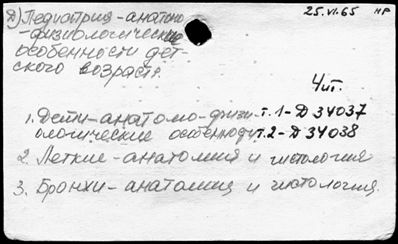 Д) Педиатрия - анатомо 25.VI.65 НР
-физиологические
особенности дет-
ского возраста
Чит.
1. Дети - анатомо-физи- т.1-Д34037
ологические особенност т.2-Д34038
2. Легкие - анатомия и гистология
3. Бронхи - анатомия и гистология.